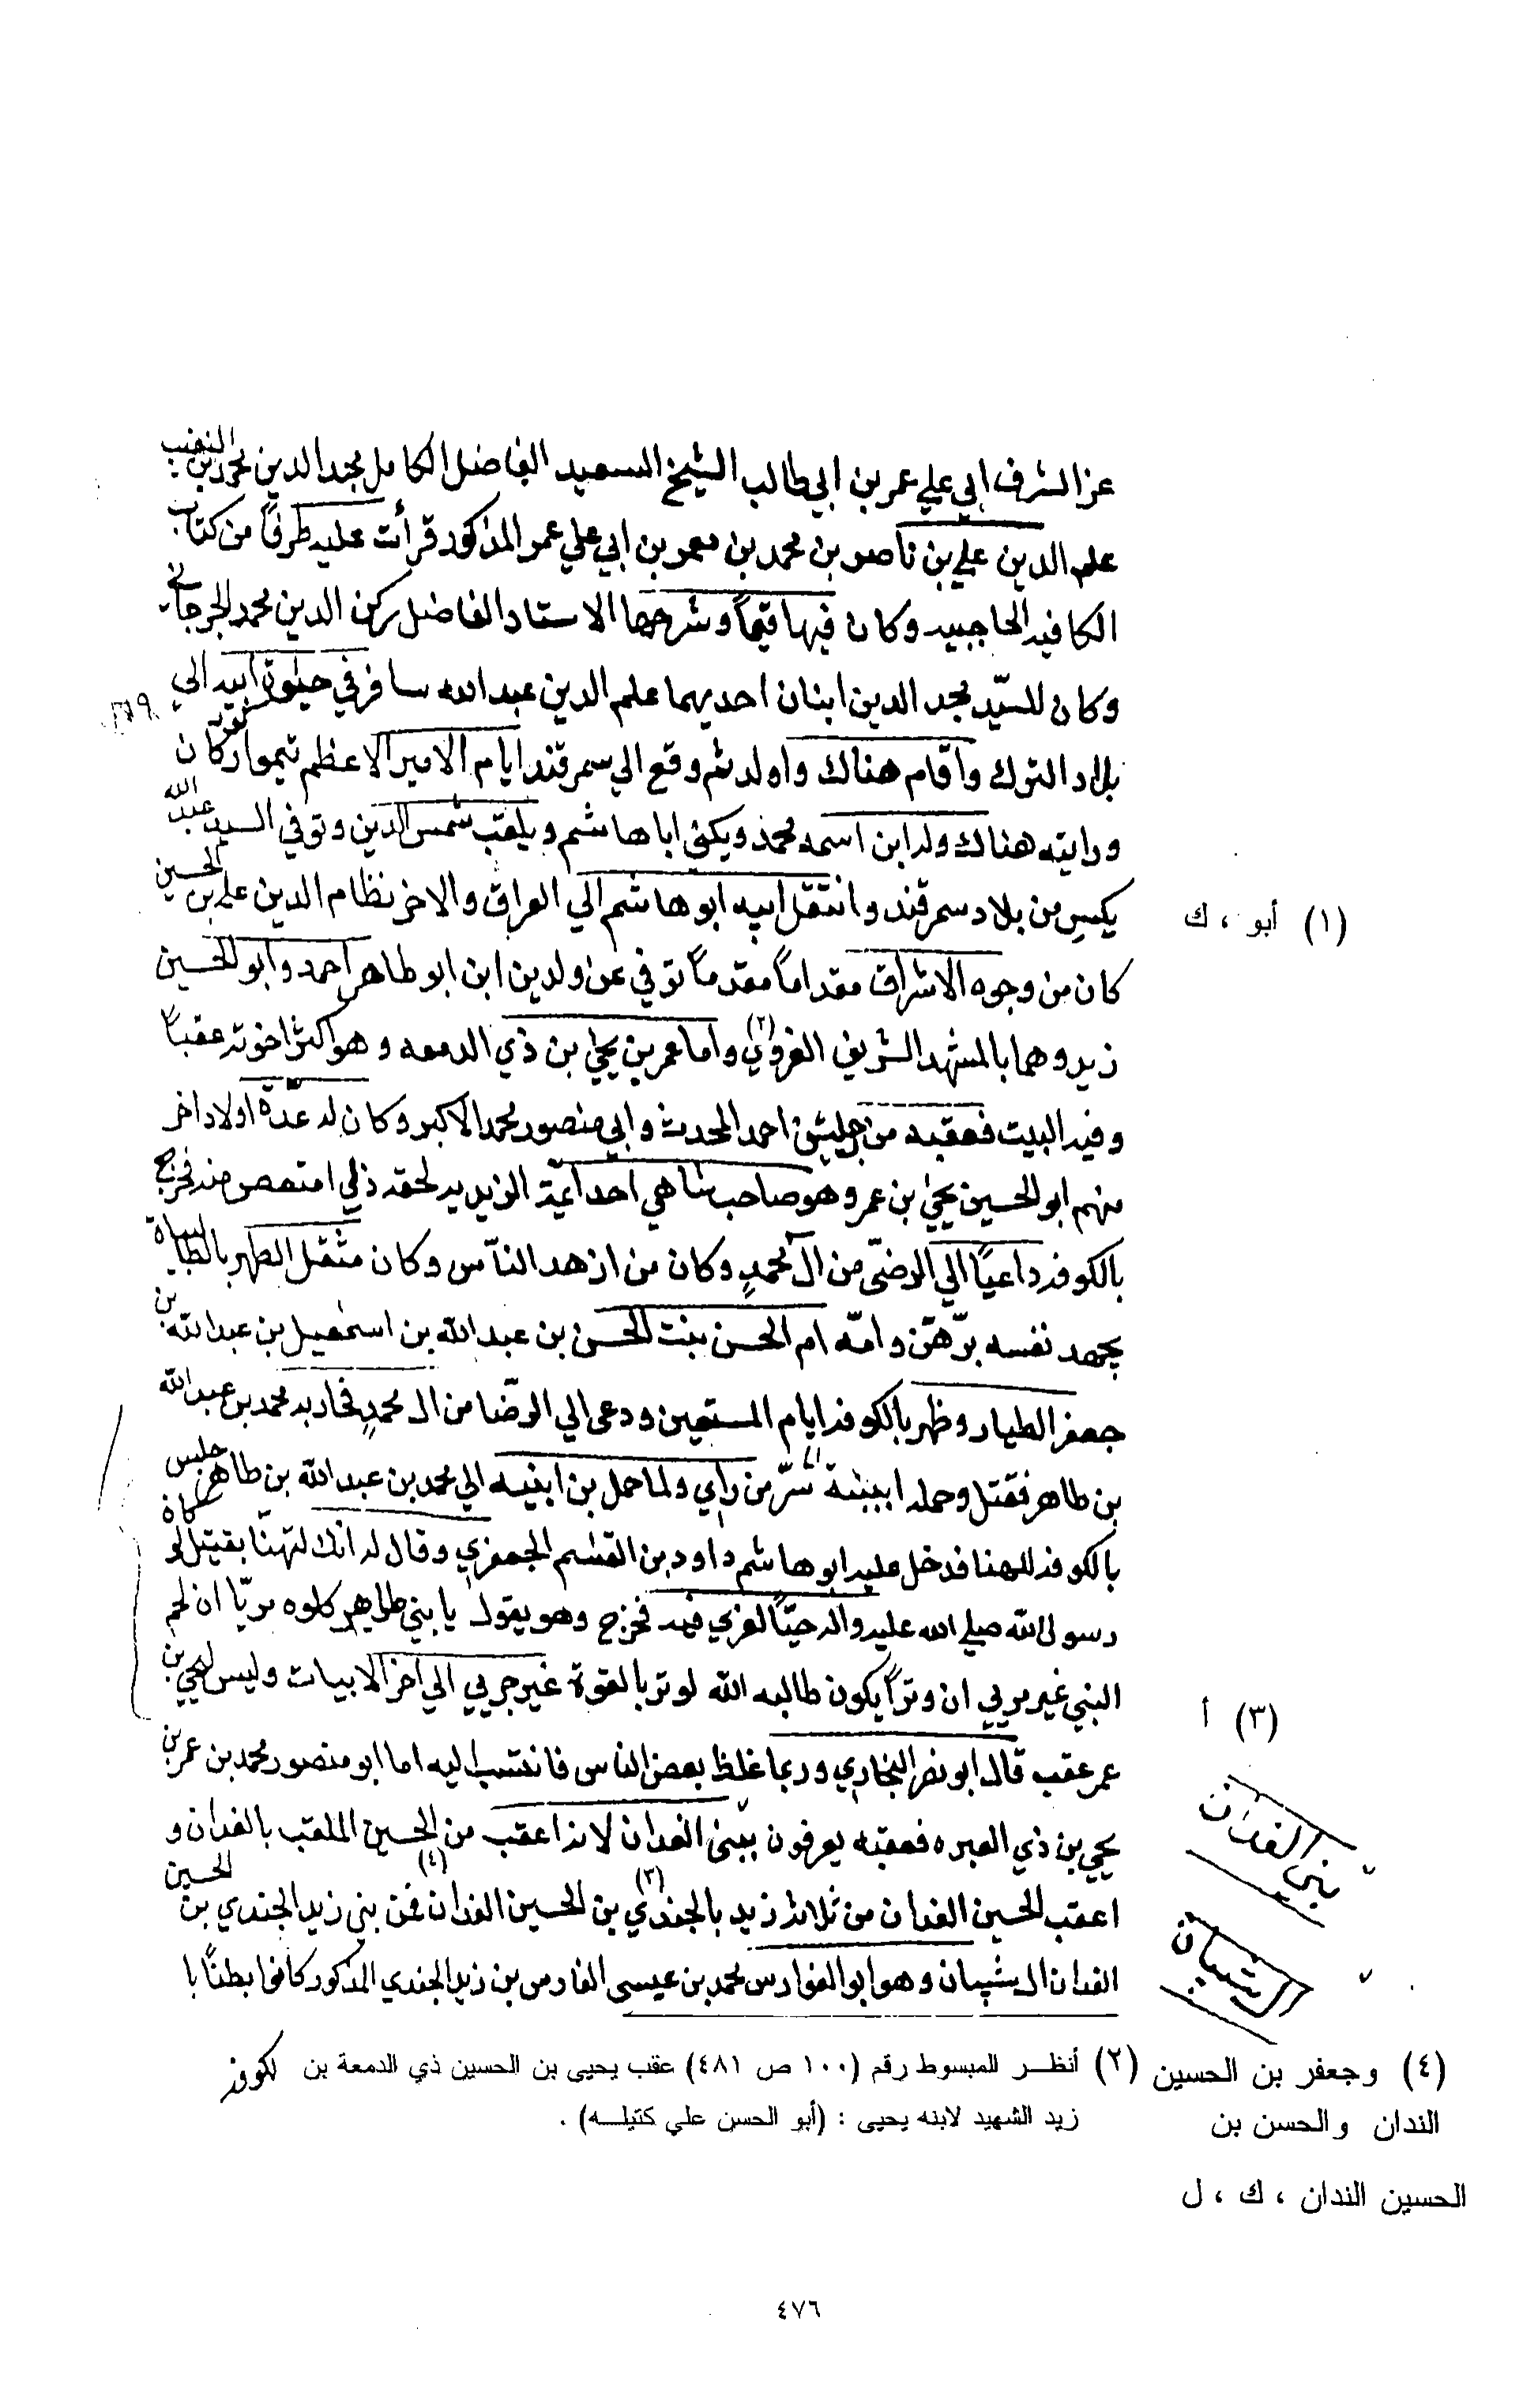 عز الشرف ابي علي عمر بن ابي طالب الشيخ السعيد الفاضل الكامل مجد الدين محمد بن النقيب
علم الدين علي بن ناصر بن محمد بن معمر بن ابي علي عمر المذكور قرأت عليه طرفًا من كتاب
الكافيه الحاجبيه وكان فيها قيمًا وشرحها الاستاد الفاضل ركن الدين محمد الجرجاني
وكان للسيّد مجد الدين ابنان احديهما علم الدين عبد الله سافر في حيٰوة ابيه الي
بلاد الترك وأقام هناك واولد ثم وقع الي سمرقند ايام الامير الاعظم تيمور كان
ورايته هناك ولد ابن اسمه محمد ويكنى ابا هاشم ويلقب شمس الدين وتوفي السيد عبد الله
بكس من بلاد سمرقند وانتقل ابيه ابو هاشم الي العراق والاخر نظام الدين علي بن الحسين
كان من وجوه الاشراف مقدامًا مقدمًا توفي عن ولدين ابن ابو طاهر احمد وابو الحسين
زيد وهما بالمشهد الشريف الغروي (٢) واما عمر بن يحيٰ بن ذي الدمعه وهو اكثر اخوته عقبًا
وفيه البيت فعقبه من رجلين احمد المحدث وابي منصور محمد الاكبر وكان له عدّة اولاد اخر
منهم ابو الحسين يحيٰ بن عمر وهو صاحب شاهي احد ائمّة الزيديه لحقه ذلي امتعص منه فخرج
بالكوفه داعيًا الي الرضى من آل محمدٍ وكان من ازهد الناس وكان مثقل الظهر بالطالبياة
يجهد نفسه برّهن وامّه ام الحسن بنت الحسن بن عبد الله بن اسمٰعيل بن عبد الله بن
جعفر الطيار وظهر بالكوفه ايام المستعين ودعى الي الرّضا من ال محمدٍ فحاربه محمد بن عبد الله
بن طاهر فقتل وحمله سرّ من راي ولما حمل الي محمد بن عبد الله بن طاهر جلس
بالكوفه للهنا فدخل عليه ابو هاشم داود بن القٰسم الجعفري وقال له انك لتهنّا بقتيل لو كان
رسول الله صلي الله عليه واله حيًّا لعزي فيه فخرج وهو يقول يا بني طاهر كلوه مريّا ان لحم
النبي غير مري ان وترًا يكون طالبه الله لوتر بالقوة غير جري الي اخر الابيات وليس ليحيى بن
عمر عقب قال ابو نصر البخاري وربما غلظ بعض الناس فانتسب اليه اما ابو منصور محمد بن عمر بن
يحيي بن ذي العبره فعقبه يعرفون ببنى الفدان لانه اعقب من الحسين الملقب بالفدان و
اعقب الحسين الفدان من ثلاثه زيد بالجندي (٣) بن الحسين الفدان (٤) فمن بني زيد الجندي بن الحسين
الفدان ال شيبان وهو ابو الفوارس محمد بن عيسى الفارس بن زيد الجندي المذكور كانوا بطنًا با
لكوفه
(١) أبو ، ك
(٣) أ
بني الفدان
ال شيبان
(٢) أنظر للمبسوط رقم (١٠٠ ص ٤٨١) عقب يحيى بن الحسين ذي الدمعة بن
زيد الشهيد لابنه يحيى : (أبو الحسن علي كتيله) .
(٤) وجعفر بن الحسين
الندان والحسن بن
الحسين الندان ، ك ، ل
٤٧٦